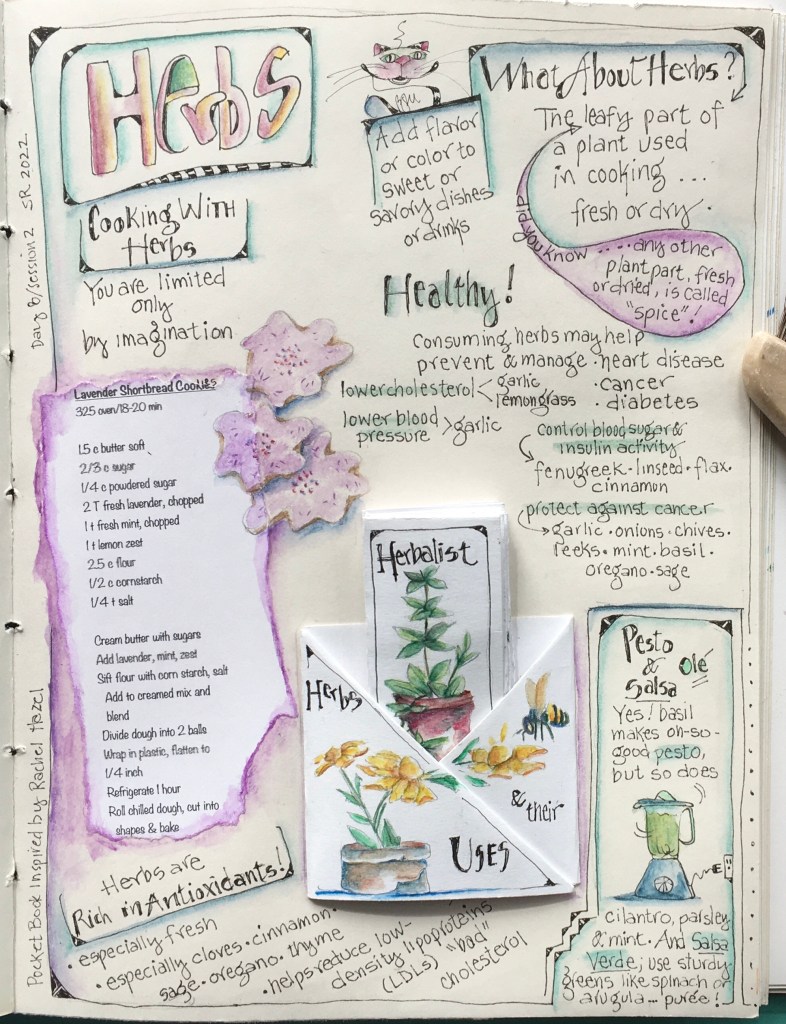 Herbs
Cooking With
Herbs
You are limited
only
by imagination
Add flavor
or color to
sweet or
savory dishes
or drinks
What About Herbs?
The leafy part of
a plant used
in cooking ...
fresh or dry.
did you know ..... any other
plant part, fresh
or dried, is called
"spice"!
Healthy!
Consuming herbs may help
prevent & manage · heart disease
· cancer
· diabetes
lower cholesterol < garlic
lemongrass
lower blood
pressure > garlic
control blood sugar &
insulin activity
fenugreek · linseed · flax ·
cinnamon
protect against cancer
garlic · onions · chives ·
leeks · mint · basil ·
oregano · sage
Lavender Shortbread Cookies
325 oven/18-20 min
1.5 c butter soft
2/3 c sugar
1/4 c powdered sugar
2 T fresh lavender, chopped
1 t fresh mint, chopped
1 t lemon zest
2.5 c flour
1/2 c cornstarch
1/4 t salt
Cream butter with sugars
Add lavender, mint, zest
Sift flour with corn starch, salt
Add to creamed mix and
blend
Divide dough into 2 balls
Wrap in plastic, flatten to
1/4 inch
Refrigerate 1 hour
Roll chilled dough, cut into
shapes & bake
Herbalist
Herbs
& their
Uses
Pesto
&
Salsa
Olé
Yes! basil
makes oh-so-
good pesto,
but so does
cilantro, parsley
& mint. And Salsa
Verde; use sturdy
greens like spinach or
arugula... purée!
Herbs are
Rich in Antioxidants!
· especially fresh
· especially cloves · cinnamon ·
sage · oregano · thyme
· helps reduce low-
density lipoproteins
(LDLs) "bad"
cholesterol
Day 6/session 2 SR 2022
Pocket Book Inspired by Rachel Hazel